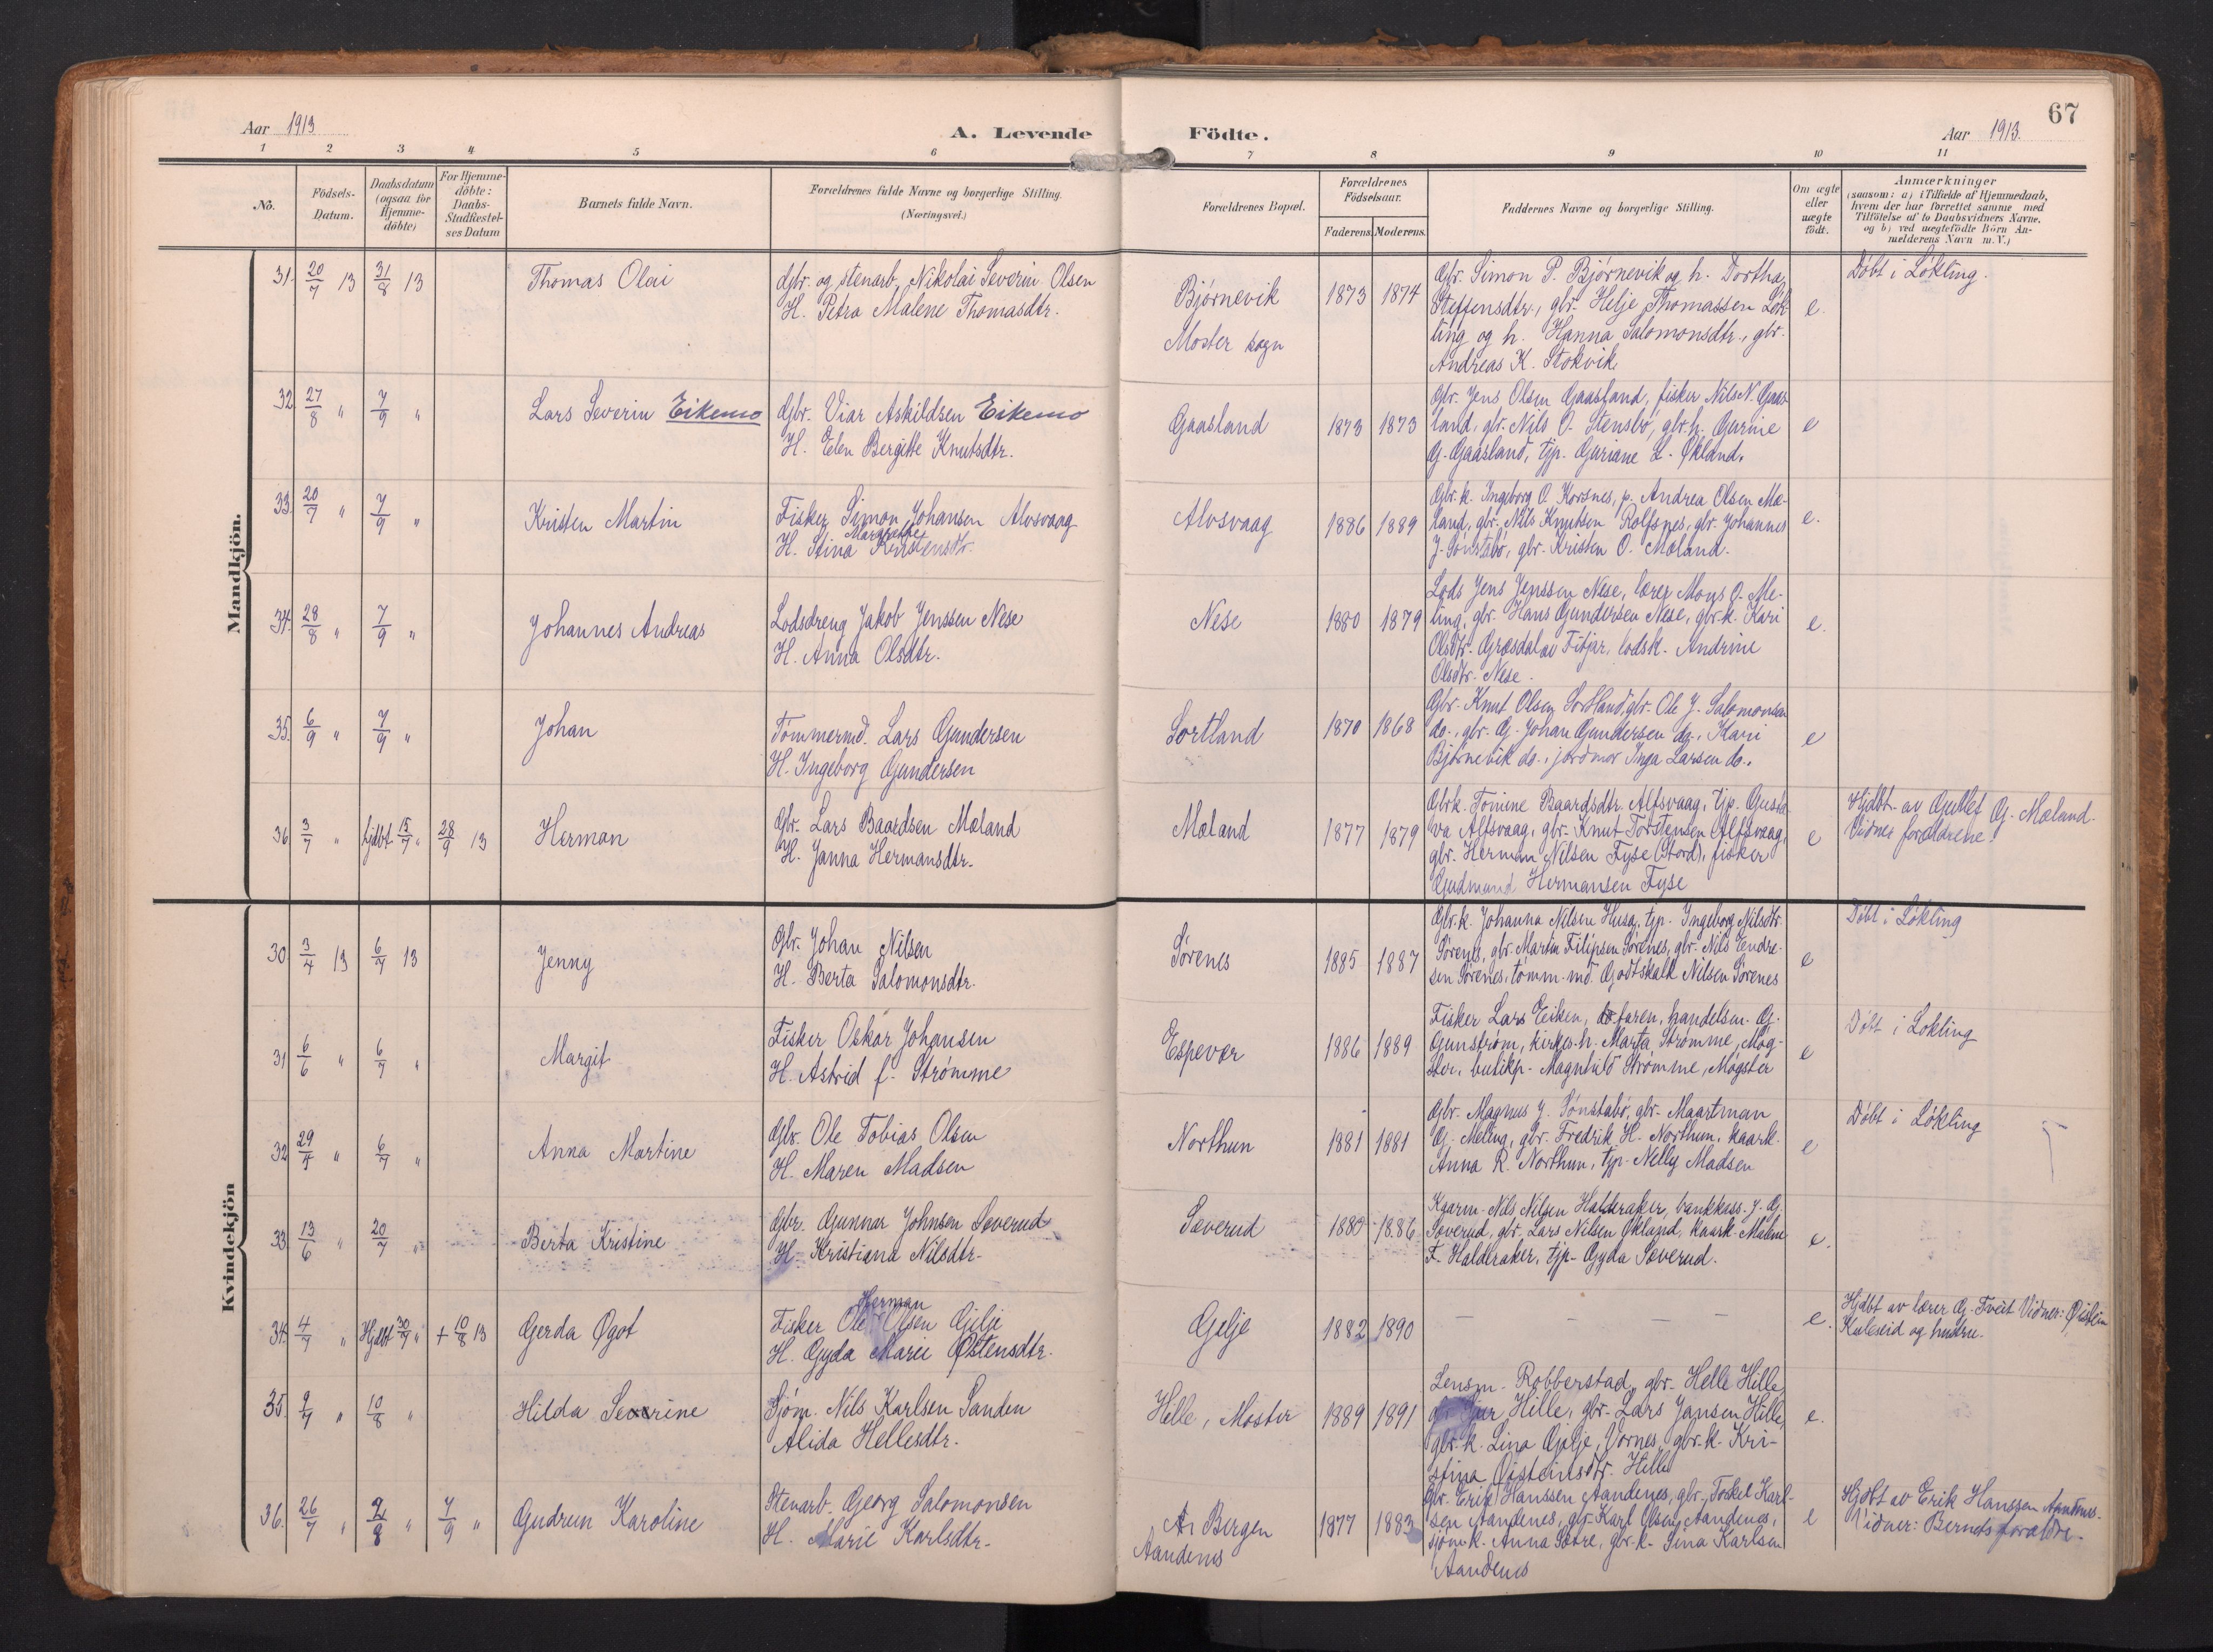 67
Aar 1913
A. Levende Födte.
Aar 1913.
1 2 3 4 5 6 7 8 9 10 11
No.
Födsels-Datum.
Daabsdatum (ogsaa for Hjemme-döbte)
For Hjemme-döbte: Daabs-Stadfæstel-ses Datum
Barnets fulde Navn.
Forældrenes fulde Navne og borgerlige Stilling. (Næringsvei.)
Forældrenes Bopæl.
Forældrenes Födselsaar.
Faderens. Moderens.
Faddernes Navne og borgerlige Stilling.
Om ægte eller uægte födt.
Anmærkninger
(saasom: a) i Tilfælde af Hjemmedaab,
hvem der har forrettet samme med
Tilföielse af to Daabsvidners Navne,
og b) ved uægtefödte Börn An-
melderens Navn m. V.)
Mandkjön.
31. 20/7 13 31/8 13 Thomas Olai
Gbr. og stenarb. Nikolai Severin Olsen
H. Petra Malene Thomasdtr.
Bjørnevik
Moster sogn
1873 1874
Gbr. Simon P. Bjørnevik og h. Dorthea
Steffensdtr., gbr. Helje Thomassen Løk-
ling og h. Hanna Salomonsdtr., gbr.
Andreas K. Stokvik
e.
Döbt i Løkling.
32. 27/8 " 7/9 " Lars Severin Eikemo
Gbr. Viar Askildsen Eikemo
H. Elen Bergitte Knutsdtr.
Gaasland
1873 1873
Gbr. Jens Olsen Gaasland, fisker Nils N. Gaas-
land, gbr. Nils O. Stensbø, gbr.h. Gurine
G. Gaasland, tjp. Guriane L. Økland.
e
33. 20/7 " 7/9 " Kristen Martin
Fisker Simon Johansen Alvsvaag
H. Stina Margrethe Kristensdtr.
Alvsvaag
1886 1889
Gbr. k. Ingeborg O. Korsnes, p. Andrea Olsen Mæ-
land, gbr. Nils Knutsen Rolfsnes, gbr. Johannes
J. Sønstabø, gbr. Kristen O. Mæland.
e.
34. 28/8 " 7/9 " Johannes Andreas
Lodsdreng Jakob Jenssen Nese
H. Anna Olsdtr.
Nese
1880 1879
Lods Jens Jenssen Nese, lærer Mons O. Me-
ling, gbr. Hans Gundersen Nese, gbr.k. Kari
Olsdtr. Græsdal av Fitjar, lodsk. Andrine
Olsdtr. Nese.
e.
35. 6/9 " 7/9 " Johan
Tømmermd. Lars Gundersen
H. Ingeborg Gundersen
Sortland
1870 1868
Gbr. Knut Olsen Sortland, gbr. Ole J. Salomonsen
do., gbr. G. Johan Gundersen do., Kari
Bjørnevik do., jordmor Inga Larsen do.
e
36 3/7 " hjdbt 15/7 " 28/9 13 Herman
Gbr. Lars Baardsen Mæland
H. Janna Hermansdtr.
Mæland
1877 1879
Gbrk. Tomine Baardsdtr. Alfsvaag, tjp. Gusta-
va Alfsvaag, gbr. Knut Torstensen Alfsvaag,
gbr. Herman Nilsen Fyse (Stord), fisker
Gudmund Hermansen Fyse
e
Hjdbt. av Gullef G. Mæland.
Vidner forældrene.
Kvindekjön
30 3/4 13 6/7 13 Jenny
Gbr. Johan Nilsen
H. Berta Salomonsdtr.
Sørenes
1885 1887
Gbr.k. Johanna Nilsen Husa, tjp. Ingeborg Nilsdtr.
Sørenes, gbr. Martin Filipsen Sørenes, gbr. Nils Endre-
sen Sørenes, tømm.md. Godtskalk Nilsen Sørenes
e
Döbt i Løkling
31 6/6 " 6/7 " Margit
Fisker Oskar Johansen
H. Astrid f. Strømme
Espevær
1886 1889
Fisker Lars Eiken, faren, handelsm. G.
Gunstrøm, kirkes.h. Marta Strømme, Møg-
ster, butikp. Magnhild Strømme, Møgster
e
Döbt i Løkling
32 29/4 " 6/7 " Anna Martine
Gbr. Ole Tobias Olsen
H. Maren Madsen
Northun
1881 1881
Gbr. Magnus J. Sønstabø, gbr. Maartman
G. Meling, gbr. Fredrik H. Northun, kaark.
Anna R. Northun, tjp. Nelly Madsen
e
Döbt i Løkling
33. 13/6 " 20/7 " Berta Kristine
Gbr. Gunnar Johnsen Sæverud
H. Kristiana Nilsdtr.
Sæverud
1880 1886
Kaarm. Nils Nilsen Halderaker, bankkass. J. G.
Sæverud, gbr. Lars Nilsen Økland, kaark. Malene
F. Halderaker, tjp. Gyda Sæverud.
e.
34. 4/7 " Hjdbt 30/7 " + 10/8 13 Gerda Ogot
Fisker Ole Herman Olsen Gilje
H. Gyda Marie Østensdtr.
Gilje
1882 1890
— — — —
e.
Hjdbt av lærer G. Tveit Vidner: Øistein
Kuleseid og hustru.
35. 9/7 " 10/8 " Hilda Severine
Sjøm. Nils Karlsen Sanden
Alida Hellesdtr.
Hille, Moster
1889 1891
Lensm. Robberstad, gbr. Helle Hille,
Hille, gbr. Lars Jansen Hille,
gbr.k. Lina Gilje, Vornes, gbr.k. Kri-
stina Øisteinsdtr. Hille
e.
36. 26/7 " 2/8 " 7/9 " Gudrun Karoline
Stenarb. Georg Salomonsen
H. Marie Karlsdtr.
A. Bergen
Aandenes
1877 1883
Gbr. Erik Hanssen Aandenes, gbr. Torkel Karl-
sen Aandenes, gbr. Karl Olsen Aandenes,
sjøm.k. Anna Sætre, gbr.k. Sina Karlsen
Aandenes
e
Hjdbt av Erik Hanssen Aandenes.
Vidner: Bernets forældre.